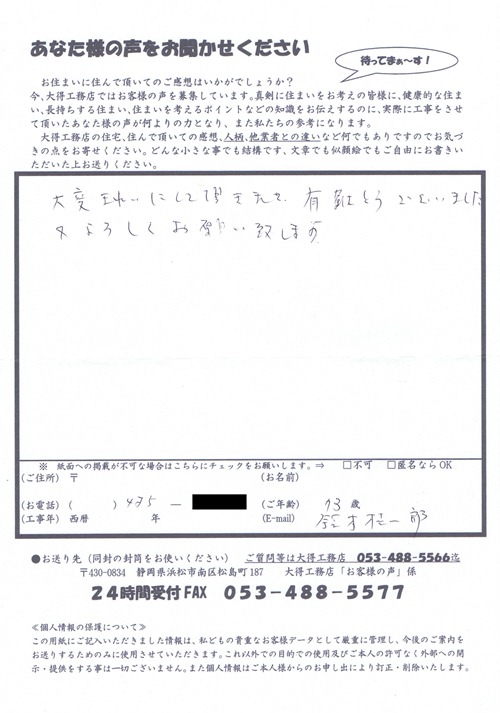 あなた様の声をお聞かせください
待ってまぁ～す！
お住まいに住んで頂いてのご感想はいかがでしょうか？
今、大得工務店ではお客様の声を募集しています。真剣に住まいをお考えの皆様に、健康的な住ま
い、長持ちする住まい、住まいを考えるポイントなどの知識をお伝えするのに、実際に工事をさせ
て頂いたあなた様の声が何よりの力となり、また私たちの参考になります。
大得工務店の住宅、住んで頂いての感想、人柄、他業者との違いなど何でもありですのでお気づ
きの点をお寄せください。どんな小さな事でも結構です、文章でも似顔絵でもご自由にお書きい
ただいた上お送りください。
大変きれいにして頂きまして 有難とうございました
又よろしくお願い致します
※ 紙面への掲載が不可な場合はこちらにチェックをお願いします。⇒ □不可 □匿名ならOK
(ご住所) 〒 (お名前)
(お電話) ( ) 435 ― (ご年齢) 73 歳
(工事年) 西暦 年 (E-mail) 鈴木桂一郎
●お送り先（同封の封筒をお使いください） ご質問等は大得工務店 053-488-5566迄
〒430-0834 静岡県浜松市南区松島町187 大得工務店「お客様の声」係
24時間受付FAX 053-488-5577
≪個人情報の保護について≫
この用紙にご記入いただきました情報は、私どもの貴重なお客様データとして厳重に管理し、今後のご案内を
お送りするためのみに使用させていただきます。これ以外での目的での使用及びご本人の許可なく外部への開
示・提供をする事は一切ございません。また個人情報はご本人様からのお申し出により訂正・削除いたします。